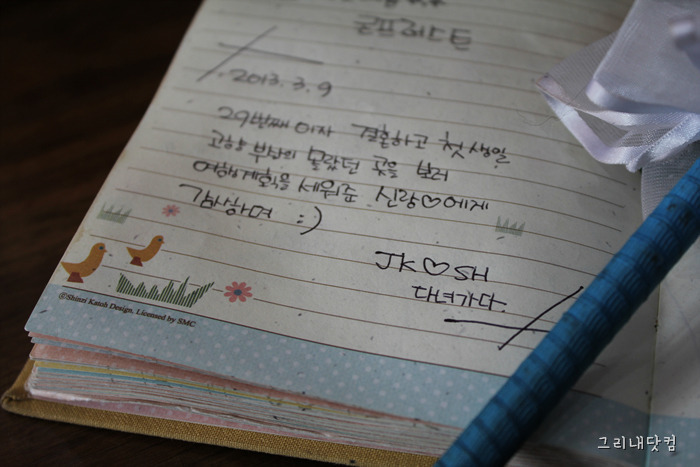 2013. 3. 9
29번째 이자 결혼하고 첫 생일
고향 부산의 몰랐던 곳을 보러
여행계획을 세워준 신랑♡에게
감사하며 :)
JK♡SH
다녀가다.
ⓒShinzi Katoh Design, Licensed by SMC
그리내닷컴